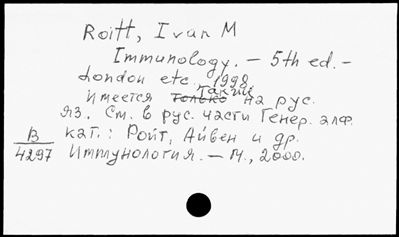 Roitt, Ivan M
Immunology. – 5th ed. –
London etc., 1998
Имеется только также на рус.
яз. См. в рус. части Генер. алф.
кат.: Ройт, Айвен и др.
Иммунология. – М., 2000.
В
4297